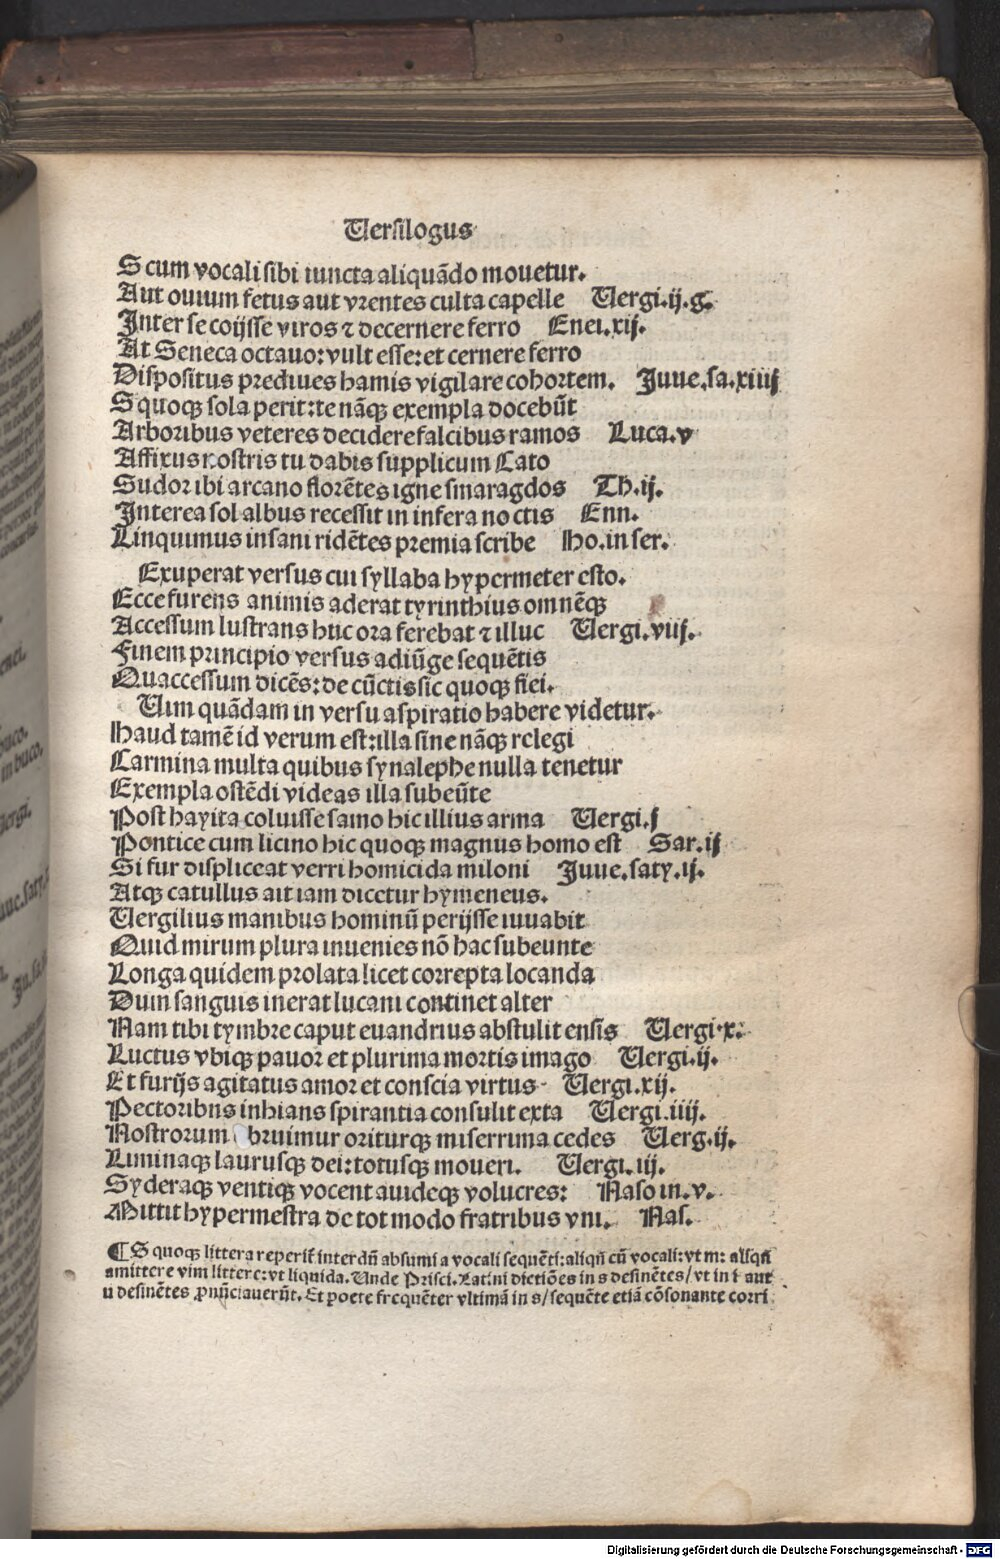 Uersilogus
S cum vocali sibi iuncta aliquãdo mouetur.
Aut ouium fetus aut vrentes culta capelle Uergi.ij.g.
Inter se coijsse viros ⁊ decernere ferro Enei.xij.
At Seneca octauo: vult esse: et cernere ferro
Dispositus prediues hamis vigilare cohortem. Juue.sa.xiiij
S quoqꝫ sola perit: te nãqꝫ exempla docebũt
Arboribus veteres decidere falcibus ramos Luca.v
Affixus nostris tu dabis supplicum Cato
Sudor ibi arcano florẽtes igne smaragdos Th.ij.
Interea sol albus recessit in infera noctis Enn.
Linquimus insani ridẽtes premia scribe Ho.in ser.
Exuperat versus cui syllaba hypermeter esto.
Ecce furens animis aderat tyrinthius omnẽqꝫ
Accessum lustrans huc ora ferebat ⁊ illuc Uergi.viij.
Finem principio versus adiũge sequẽtis
Quaccessum dicẽs: de cũctis sic quoqꝫ fiei.
Uim quãdam in versu aspiratio habere videtur.
Haud tamẽ id verum est: illa sine nãqꝫ relegi
Carmina multa quibus synalephe nulla tenetur
Exempla ostẽdi videas illa subeũte
Post hayita coluisse samo hic illius arma Uergi.j
Pontice cum licino hic quoqꝫ magnus homo est Sar.ij
Si fur displiceat verri homicida miloni Juue.saty.ij.
Atqꝫ catullus ait iam dicetur hymeneus.
Uergilius manibus hominũ perijsse iuuabit
Quid mirum plura inuenies nõ hac subeunte
Longa quidem prolata licet correpta locanda
Dum sanguis inerat lucani continet alter
Nam tibi tymbre caput euandrius abstulit ensis Uergi.x.
Luctus vbiqꝫ pauor et plurima mortis imago Uergi.ij.
Et furijs agitatus amor et conscia virtus Uergi.xij.
Pectoribus inhians spirantia consulit exta Uergi.iiij.
Nostrorum bruimur oriturqꝫ miserrima cedes Uerg.ij.
Liminaqꝫ laurusqꝫ dei: totusqꝫ moueri. Uergi.iij.
Syderaqꝫ ventiqꝫ vocent auideqꝫ volucres: Naso in.v.
Mittit hypermestra de tot modo fratribus vni. Nas.
¶ S quoqꝫ littera reperit̃ interdũ absumi a vocali sequẽti: aliqñ cũ vocali: vt m: aliqñ
amittere vim littere: vt liquida. Unde Prisci. Latini dictiões in s desinẽtes/ vt in i aut
u desinẽtes ꝓnũciauerũt. Et poete frequẽter vltimã in s/ sequẽte etiã cõsonante corri
Digitalisierung gefördert durch die Deutsche Forschungsgemeinschaft - DFG